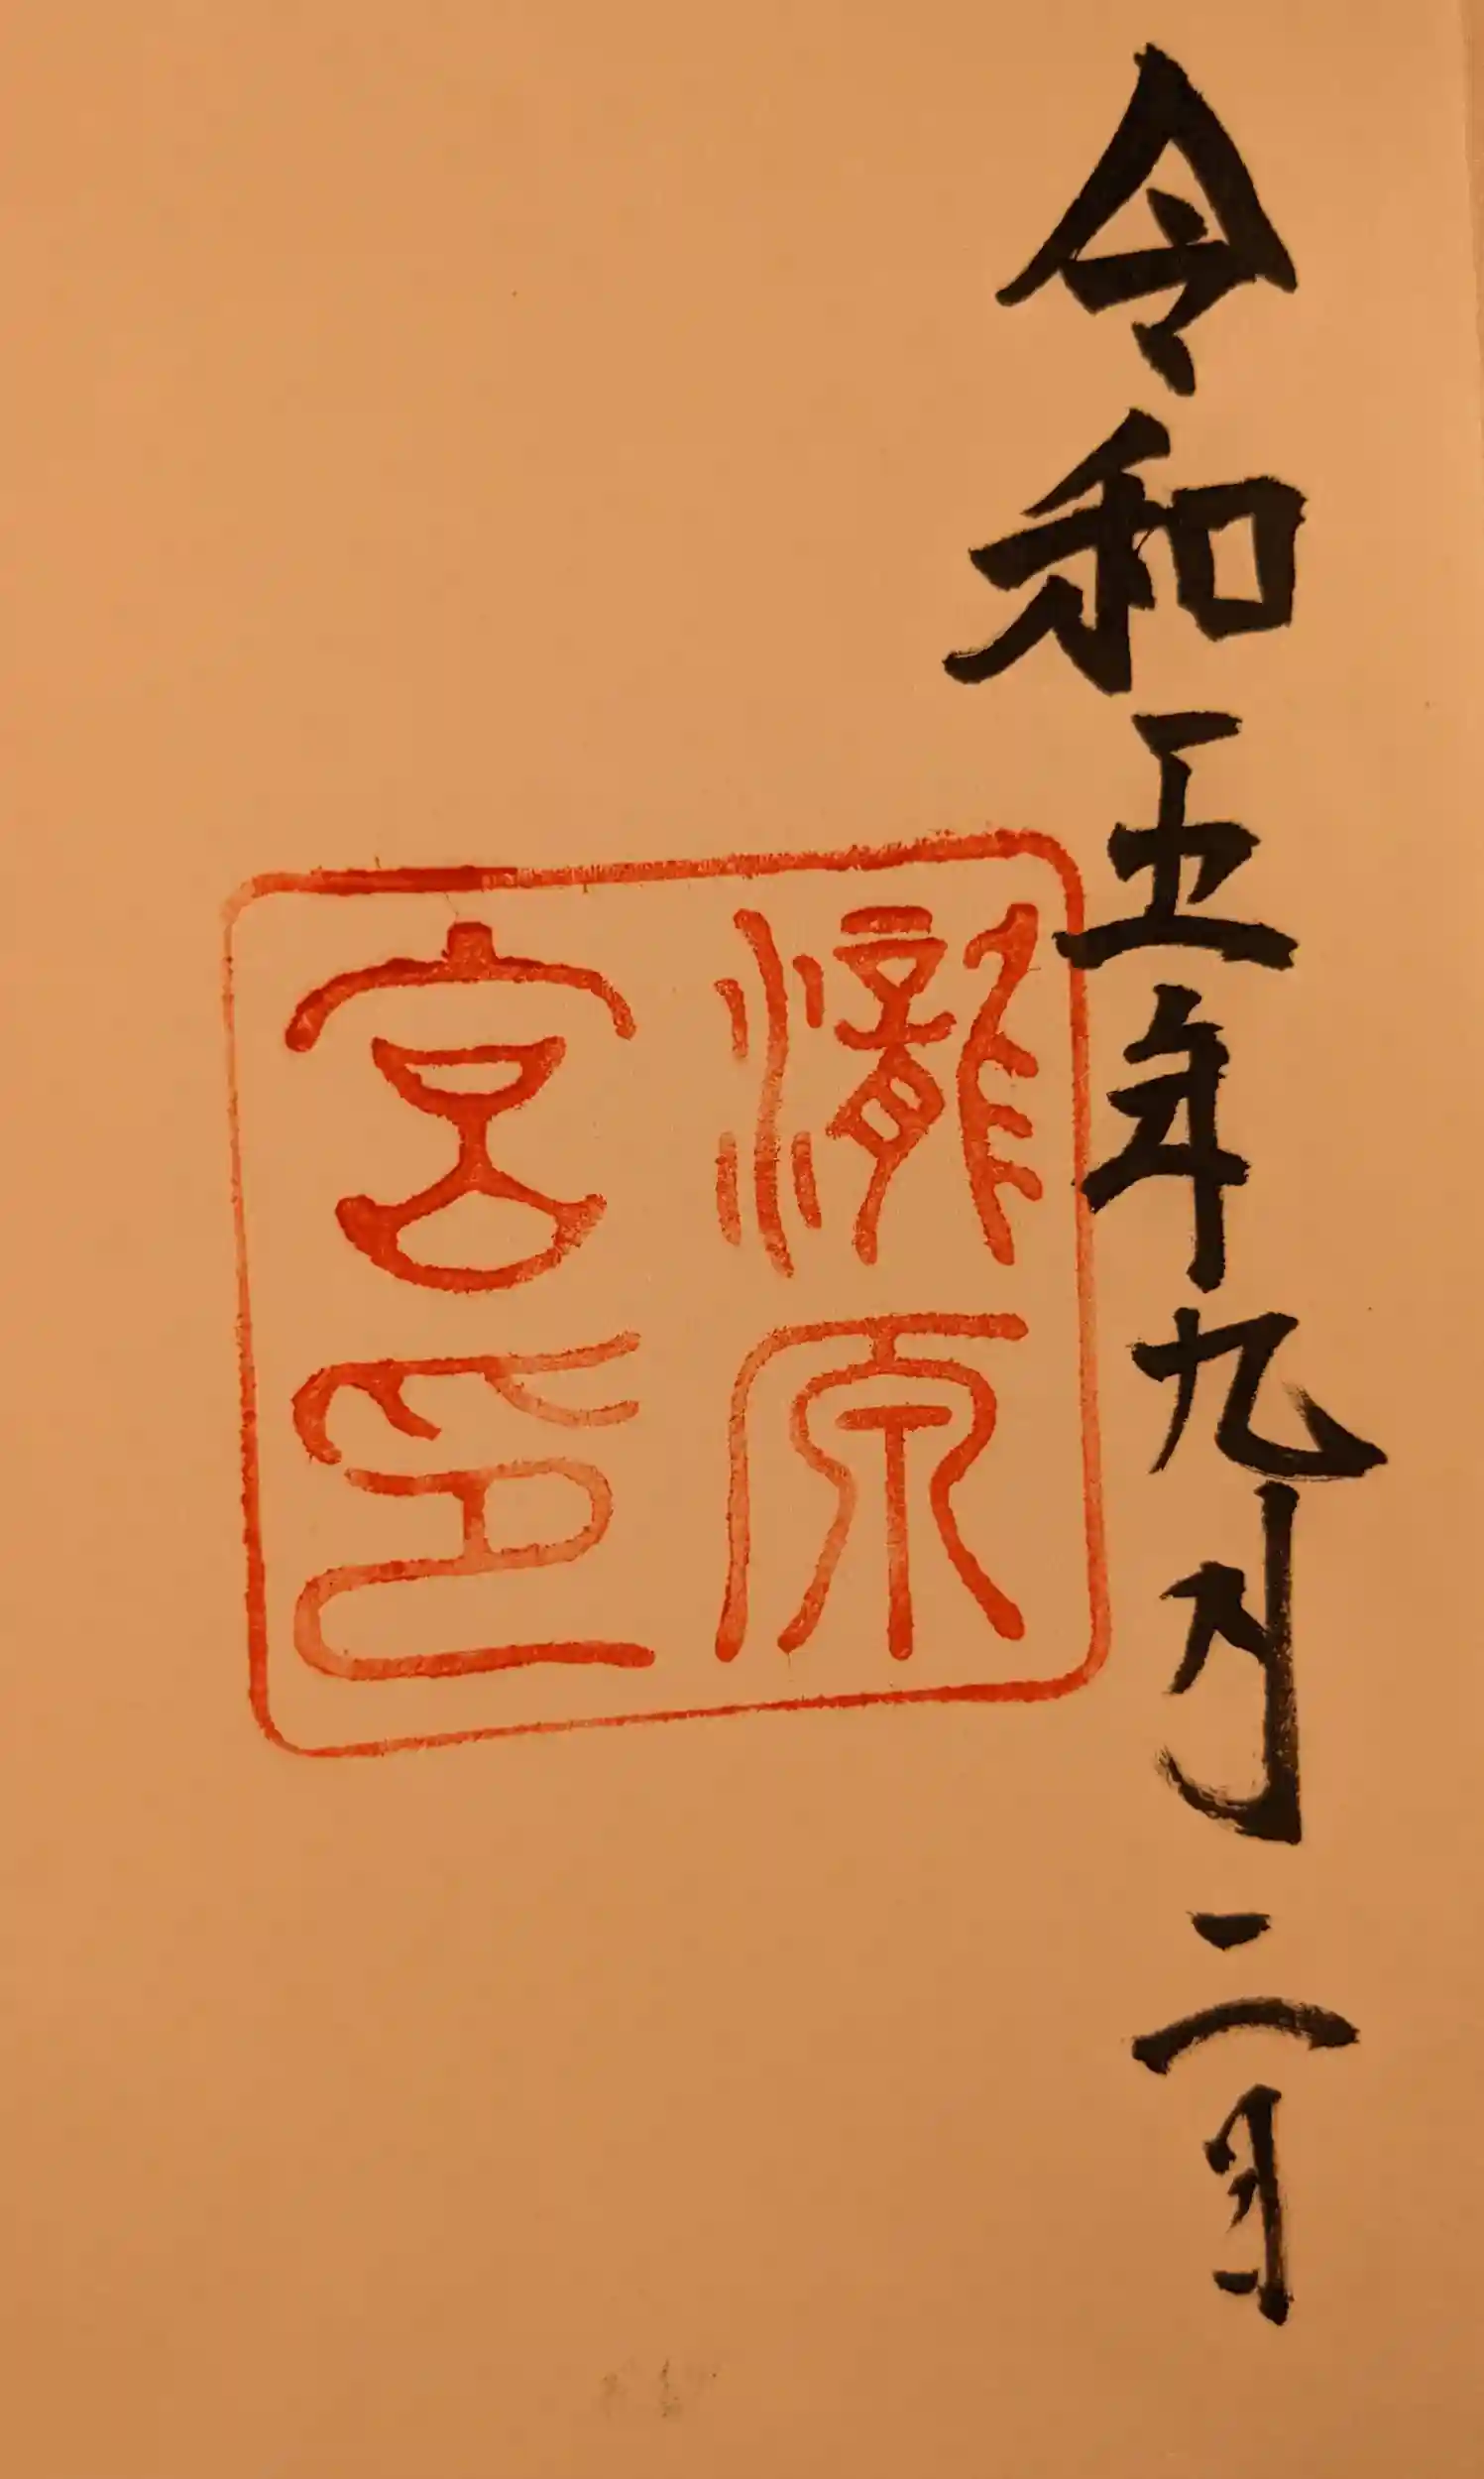 令和五年九月二日
瀧原
宮印